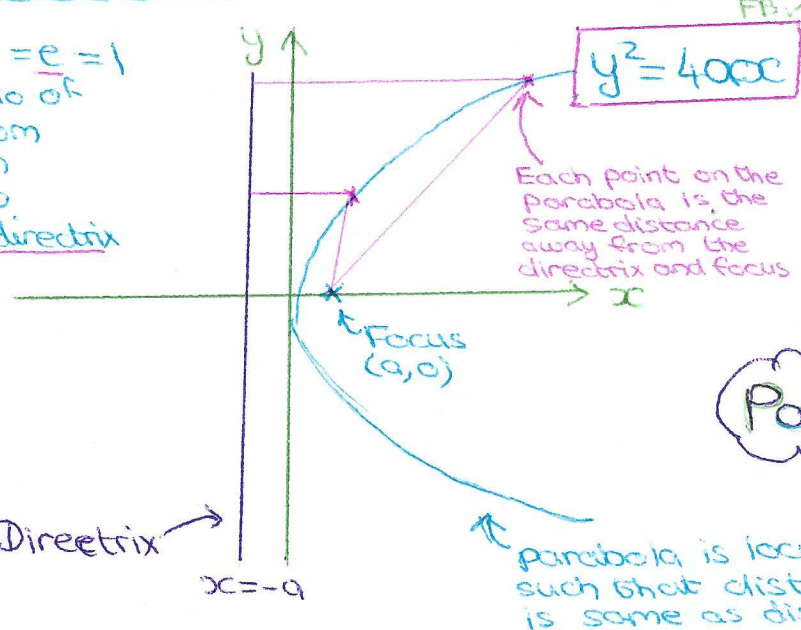 FB:
= e = 1
io of
om
directrix
y
y² = 4ax
Each point on the
parabola is the
same distance
away from the
directrix and focus
x
Focus
(a,0)
Po
Directrix
x=-a
parabola is loc
such that dist
is same as dis